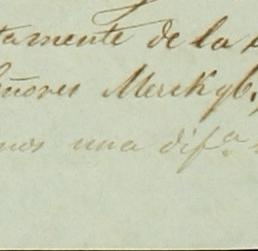 tamente de la
eñores Merck y C.
mos una dif.ª